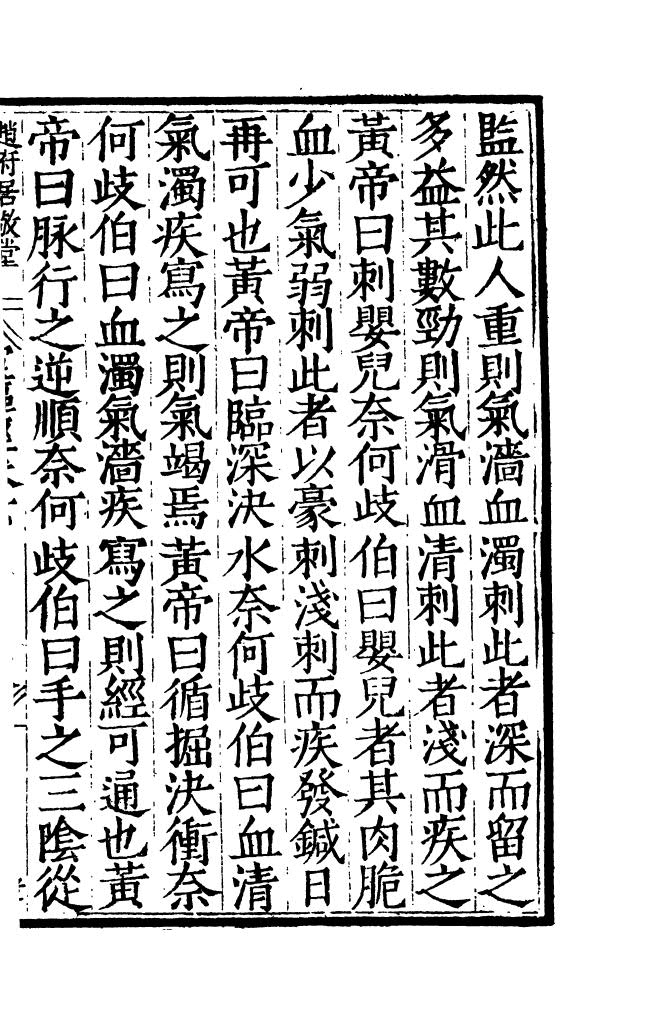 監然此人重則氣濇血濁刺此者深而留之
多益其數勁則氣滑血清刺此者淺而疾之
黃帝曰刺嬰兒奈何歧伯曰嬰兒者其肉脆
血少氣弱刺此者以豪刺淺刺而疾發鍼日
再可也黃帝曰臨深決水奈何歧伯曰血清
氣濁疾寫之則氣竭焉黃帝曰循掘決衝奈
何歧伯曰血濁氣濇疾寫之則經可通也黃
帝曰脉行之逆順奈何歧伯曰手之三陰從
趙府居敬堂